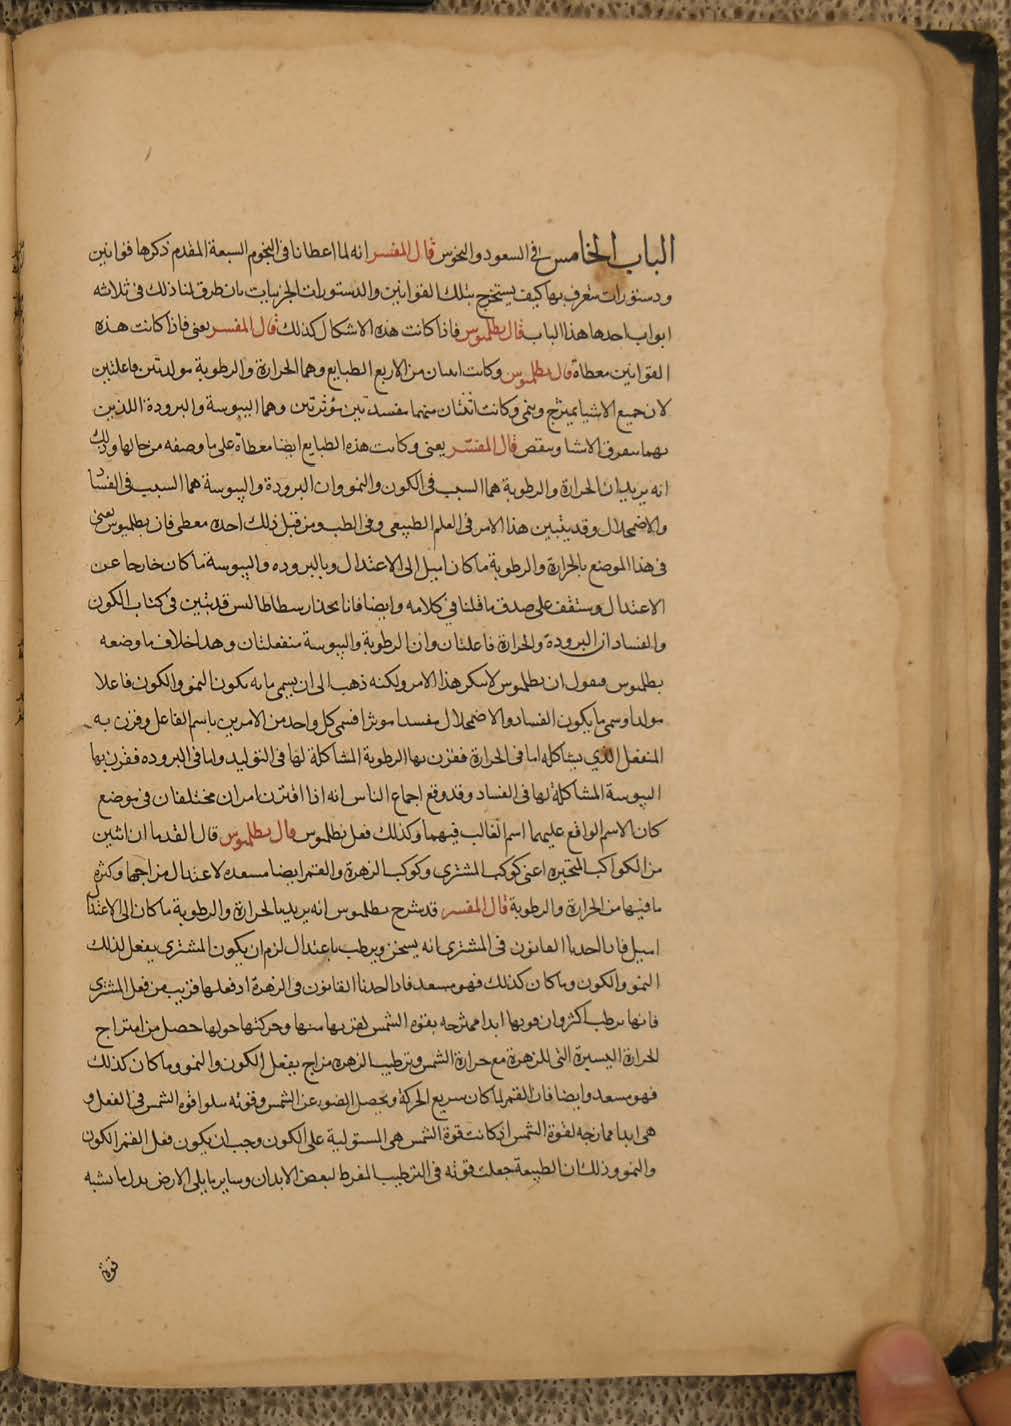 الباب الخامس في السعود والنحوس قال المفسر انه لما اعطانا في النجوم السبعة المقدم ذكرها قوانين
ودستورات نتعرف بها كيف يستخرج بتلك القوانين والدستورات الجزييات بان طرق لنا ذلك في ثلاثه
ابواب احدها هذا الباب قال بطلميوس فاذا كانت هذه الاشكال كذلك قال المفسر يعني فاذا كانت هذه
القوانين معطاة قال بطلميوس وكانت اثنتان من الاربع الطبايع وهما الحرارة والرطوبة مولدتين فاعلتين
لان جميع الاشيا يمتزج وينمي وكانت اثنتان منهما مفسدتين مؤثرتين وهما اليبوسة والبرودة اللذين
بهما يتفرق الاشيا وينقص قال المفسر يعني وكانت هذه الطبايع ايضا معطاة على ما وصفه من حالها وذلك
انه يريد ان الحرارة والرطوبة هما السبب في الكون والنمو وان البرودة واليبوسة هما السبب في الفساد
والاضمحلال وقد يتبين هذا الامر في العلم الطبيعي وفي الطب ومن قبل ذلك احده معطى فان بطلميوس يعني
في هذا الموضع بالحرارة والرطوبة ما كان اميل الى الاعتدال وبالبروده واليبوسة ما كان خارجا عن
الاعتدال وستقف على صدق ما قلنا في كلامه وايضا فانا نجد ارسطاطالس قد يتبين في كتاب الكون
والفساد ان البرودة والحرارة فاعلتان وان الرطوبة واليبوسة منفعلتان وهذا خلاف ما وضعه
بطلميوس فنقول ان بطلميوس لا ينكر هذا الامر ولكنه ذهب الى ان يسمي ما به يكون النمو والكون فاعلا
مولدا وسمي ما يكون الفساد والاضمحلال مفسدا موثرا فسمي كل واحد من الامرين باسم الفاعل وقرن به
المنفعل الذي يشاكله اما في الحرارة فقرن بها الرطوبة المشاكلة لها في التوليد واما في البروده فقرن بها
اليبوسة المشاكلة لها في الفساد وقد وقع اجماع الناس انه اذا اقترن امران مختلفان في موضع
كان الاسم الواقع عليهما اسم الغالب فيهما وكذلك فعل بطلميوس قال بطلميوس قال القدما ان اثنين
من الكواكب المتحيره اعني كوكب المشتري وكوكب الزهرة والقمر ايضا مسعده لاعتدال مزاجها وكثرة
ما فيها من الحرارة والرطوبة قال المفسر قد شرح بطلميوس انه يريد بالحرارة والرطوبة ما كان الى الاعتدال
اميل فاذا اخذنا القانون في المشتري انه يسخن ويرطب باعتدال لزم ان يكون المشتري يفعل لذلك
النمو والكون وما كان كذلك فهو مسعد فاذا اخذنا القانون في الزهرة اذ فعلها قريب من فعل المشتري
فانها ترطب اكثر وان قوتها ابدا ممتزجه بقوه الشمس لقربها منها وحركتها حولها حصل من امتزاج
الحرارة اليسيرة التي للزهرة مع حرارة الشمس وترطيب الزهرة مزاج يفعل الكون والنمو وما كان كذلك
فهو مسعد وايضا فان القمر لما كان سريع الحركة ويحصل الضوء عن الشمس وقوته تتلوا قوه الشمس في الفعل و
هي ابدا ممازجه لقوة الشمس اذ كانت قوة الشمس هي المستولية على الكون وجب ان يكون فعل القمر الكون
والنمو وذلك ان الطبيعة جعلت قوته في الترطيب المفرط لبعض الابدان وساير ما يلي الارض بدل ما تشبه
قوة